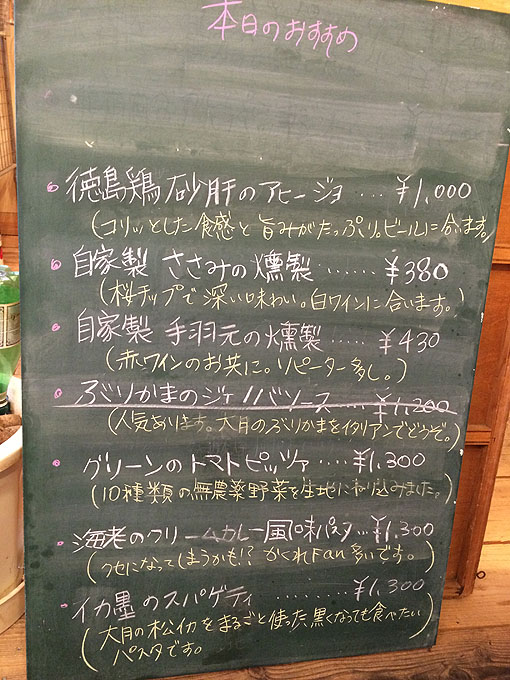 本日のおすすめ
徳島鶏 砂肝のアヒージョ … ¥1,000
(コリッとした食感と旨みがたっぷり。ビールに合います。)
自家製 ささみの燻製 …… ¥380
(桜チップで深い味わい。白ワインに合います。)
自家製 手羽元の燻製 ….. ¥430
(赤ワインのお共に。リピーター多し。)
ぶりかまのジェノバソース … ¥1,200
(人気あります。大月のぶりかまをイタリアンでどうぞ。)
グリーンのトマトピッツァ ….. ¥1,300
(10種類の無農薬野菜を生地にねり込みました。)
海老のクリームカレー風味パスタ … ¥1,300
(クセになってしまうかも!? かくれFan多いです。)
イカ墨のスパゲティ ……… ¥1,300
(大月の松イカをまるごと使った黒くなっても食べたい
パスタです。)